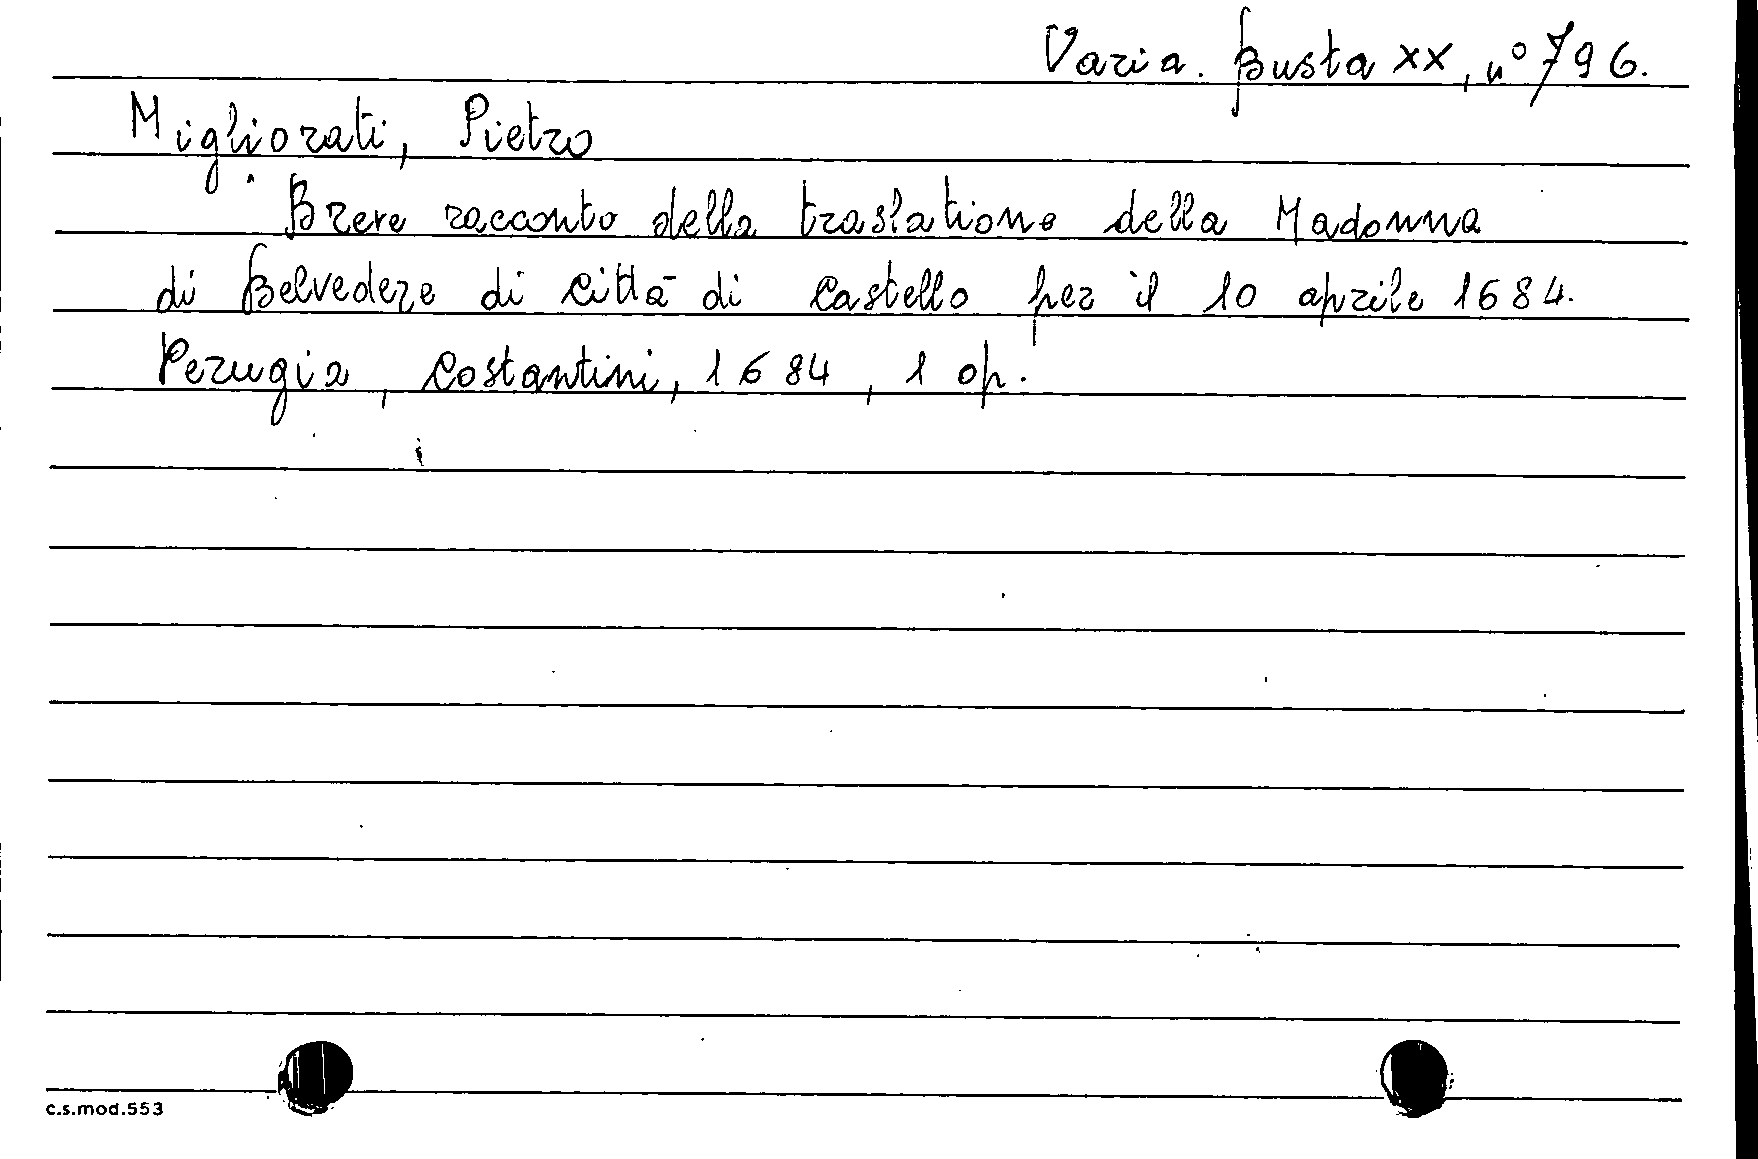 Varia. Busta XX, n° 796.
Migliorati, Pietro
Breve racconto della traslatione della Madonna
di Belvedere di Città di Castello per il 10 aprile 1684.
Perugia, Costantini, 1684, 1 op.
c.s.mod.553